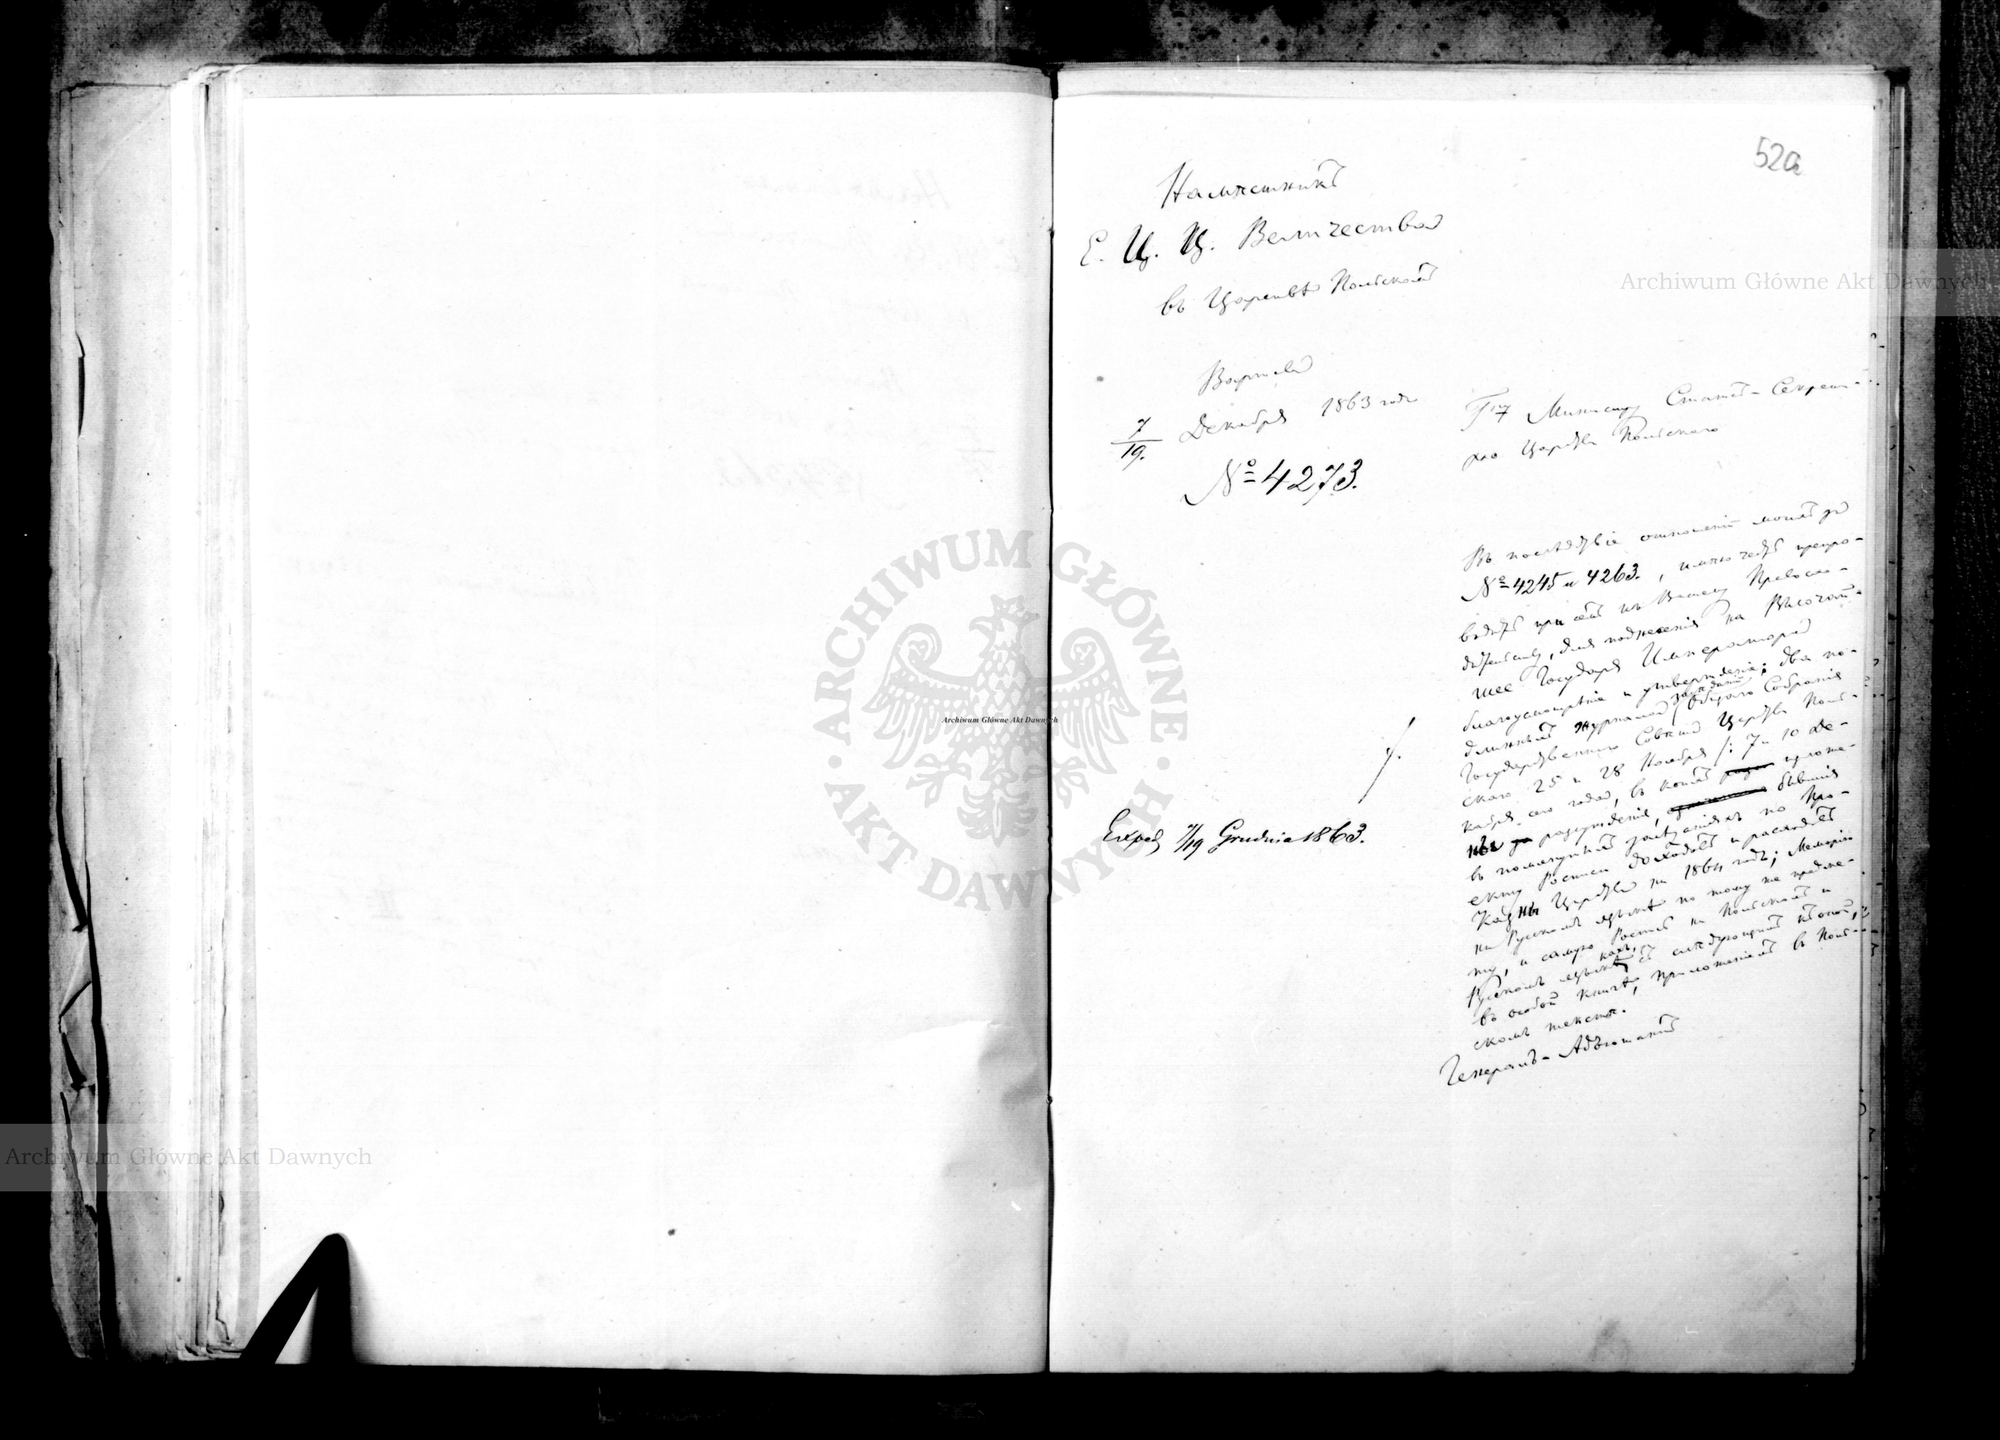 52a
Намѣстникъ
Е. И. Ц. Величества
въ Царствѣ Польскомъ
Варшава
7/19. Декабря 1863 года
№ 4273.
Гну Министру Статсъ-Секрета-
рю Царства Польскаго
Въ послѣдствіе отношеній моихъ за
№ 4245 и 4263., имѣю честь препро-
водить при семъ къ Вашему Превосхо-
дительству, для поднесенія на Высочай-
шее Государя Императора
благоусмотрѣніе и утвержденіе: два по-
длинныхъ журнала засѣданій Общаго Собранія
Государственнаго Совѣта Царства Поль-
скаго 25 и 28 Ноября /: 7 и 10 Де-
кабря сего года, въ коихъ изложе-
ны разсужденія, бывшія
въ помянутыхъ засѣданіяхъ по Про-
екту Росписи доходовъ и расходовъ
Казны Царства на 1864 годъ; Меморіи
на Русскомъ языкѣ по тому же предме-
ту, и самую Роспись на Польскомъ и
Русскомъ языкахъ, съ слѣдующимъ къ оной,
въ особой книгѣ, приложеніемъ въ Поль-
скомъ текстѣ.
Генералъ-Адъютантъ
Exped 7/19 Grudnia 1863.
Archiwum Główne Akt Dawnych
Archiwum Główne Akt Dawnych
Archiwum Główne Akt Dawnych
ARCHIWUM GŁÓWNE
AKT DAWNYCH